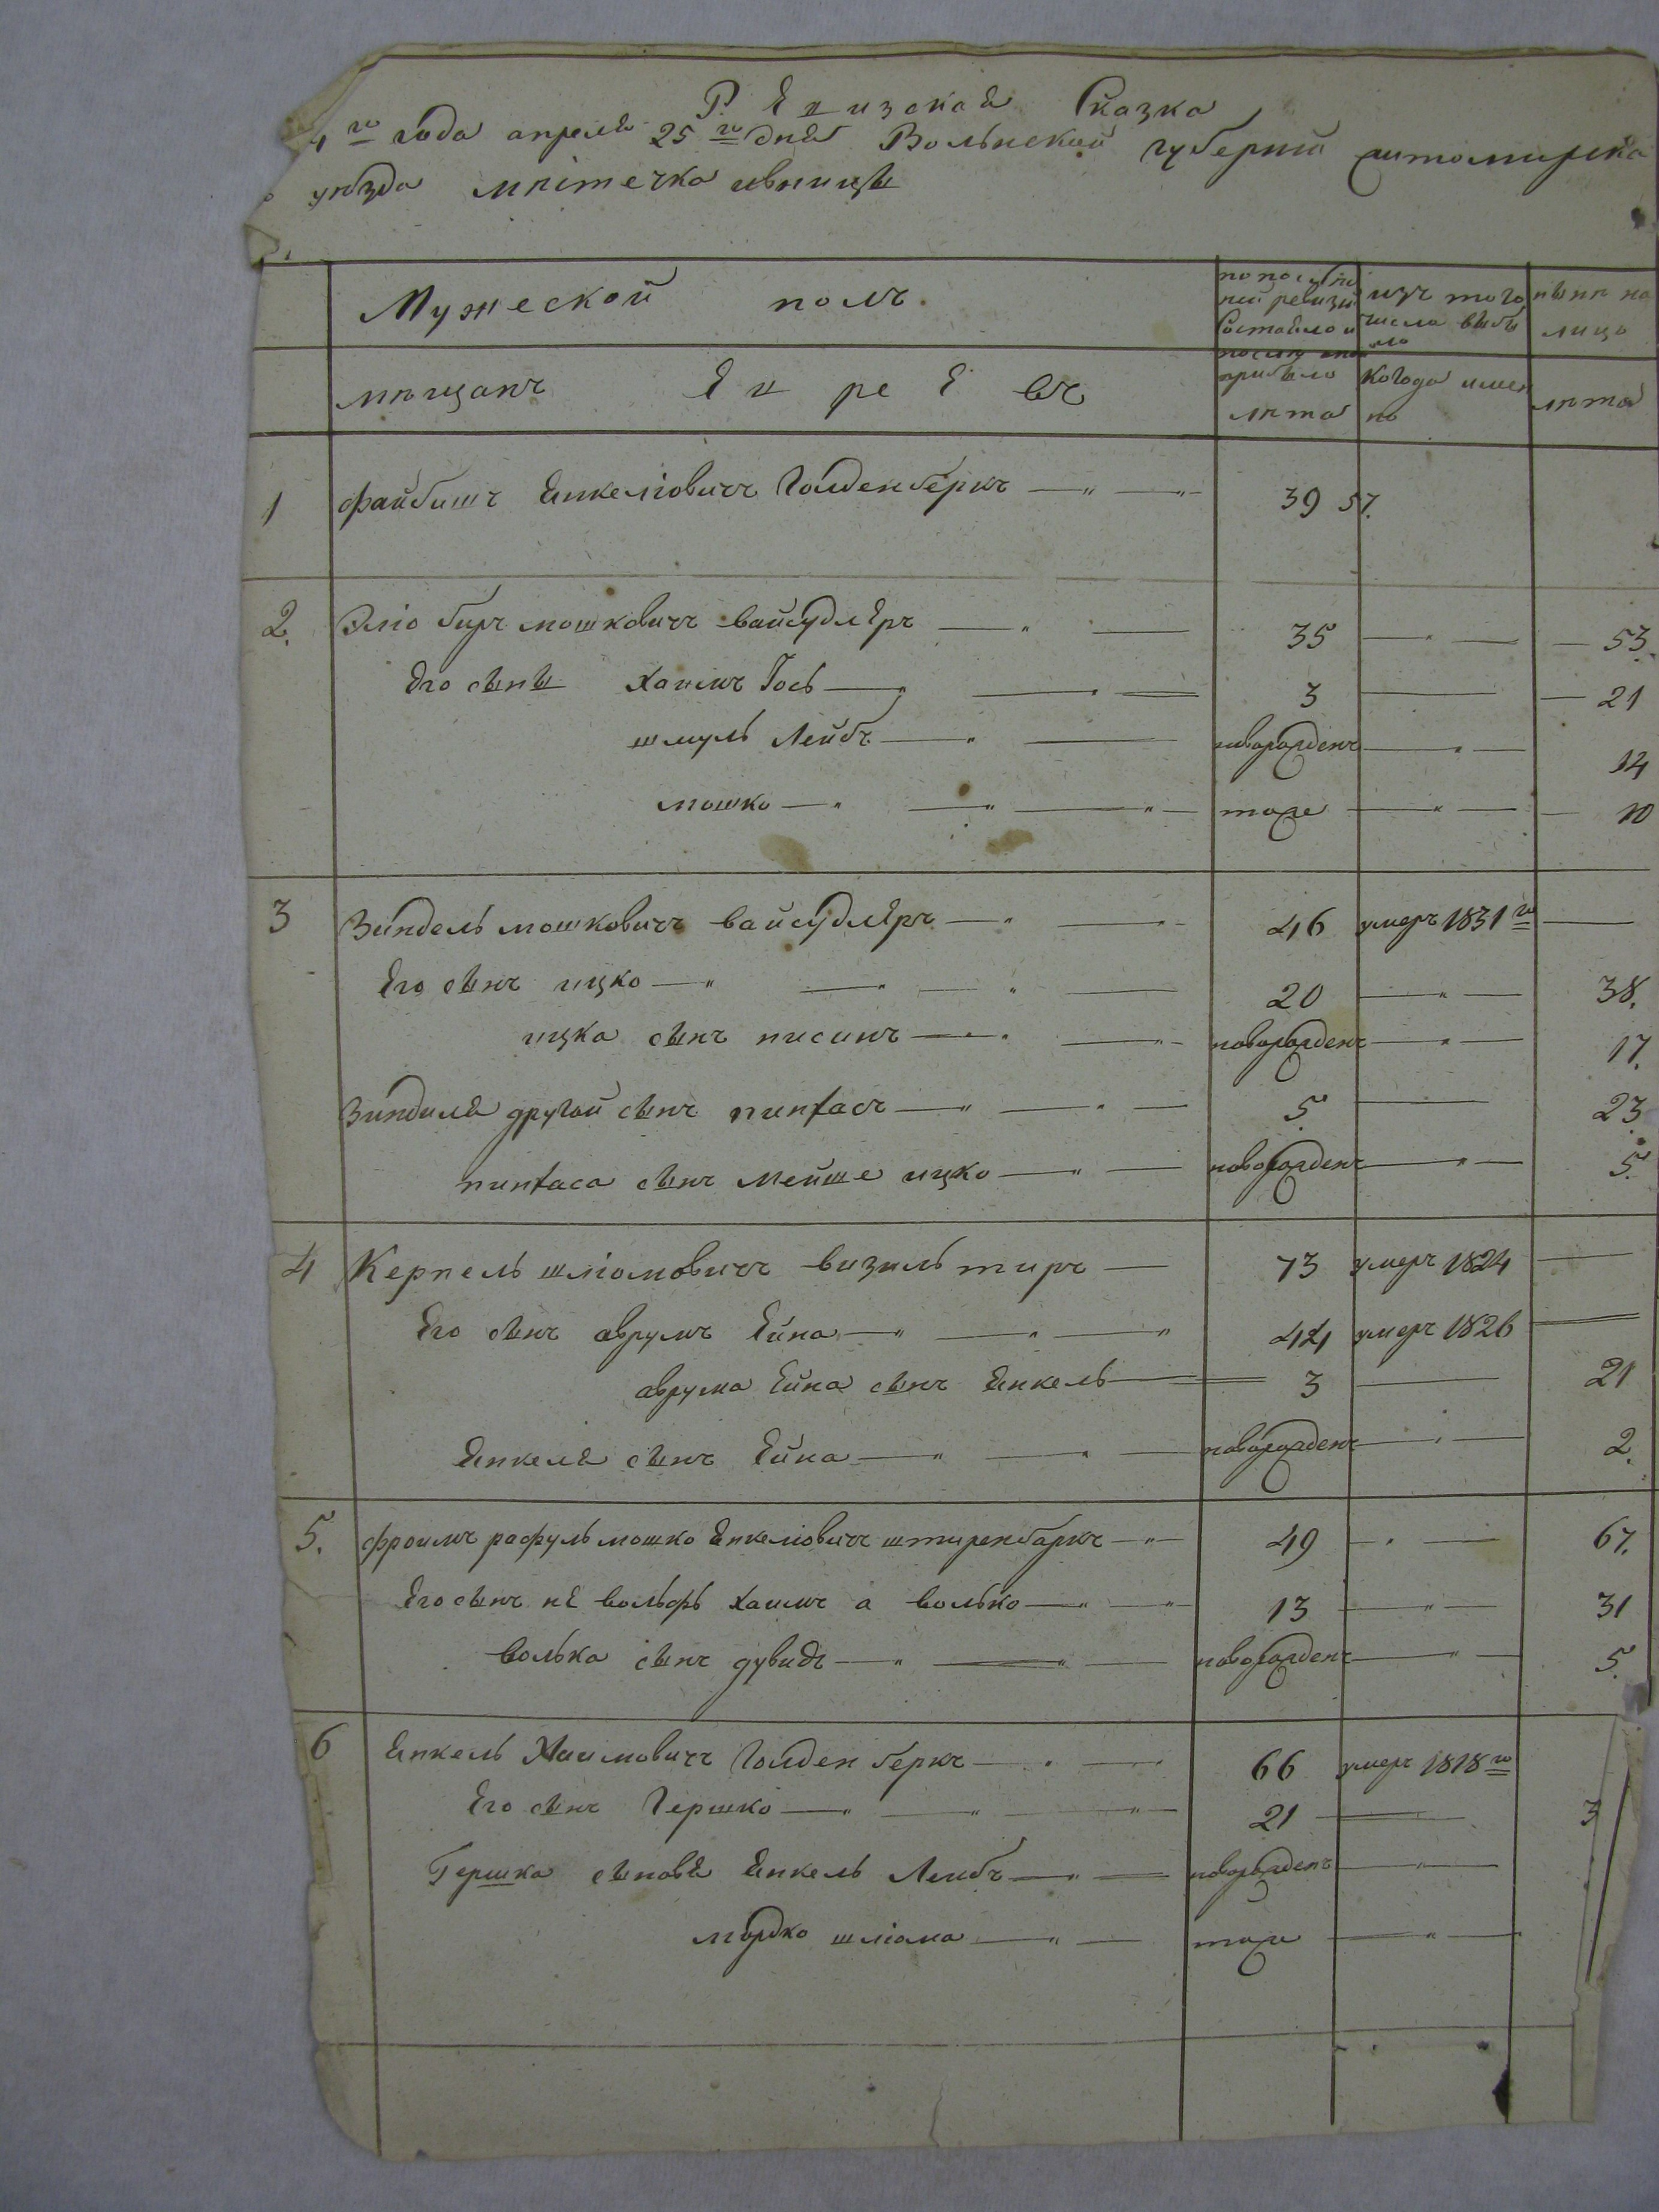 Ревизская Сказка
4го года апреля 25го дня Волынской губернии житомирска
уѣзда мѣстечка ивницы
Мужеской полъ.
по последней ревизи состояло и после прибыло
изъ того числа выбыло
нынѣ на лицо
мѣщанъ Евреевъ
лѣта
когода имено
лѣта
1 файбишъ Янкеліовичъ Голденберкъ 39 57.
2. Эліо биръ мошковичъ вайсудлеръ 35 53.
Его сыны хаимъ Іось 3 21
шмуль Лейбъ новорожденъ 14
мошко тоже 10
3 Зиндель мошковичъ вайсудлеръ 46 умеръ 1831го
Его сынъ ицко 20 38.
ицка сынъ нисинъ новорожденъ 17.
Зинделя другой сынъ пинхасъ 5. 23.
пинхаса сынъ мейше ицко новорожденъ 5.
4 Керпель шліомовичъ визильтиръ 73 умеръ 1824
Его сынъ аврумъ Ейна 44 умеръ 1826
аврума Ейна сынъ Янкель 3 21
Янкеля сынъ Ейна новорожденъ 2.
5. фроимъ рафуль мошко Янкеліовичъ штиренбаркъ 49 67.
Его сынъ не вольфъ хаимъ а волько 13 31
волька сынъ дувидъ новорожденъ 5.
6 Янкель Хаимовичъ Голденберкъ 66 умеръ 1818го
Его сынъ Гершко 21 3
Гершка сыновя Янкель Лейбъ новорожденъ
мордко шліома тоже